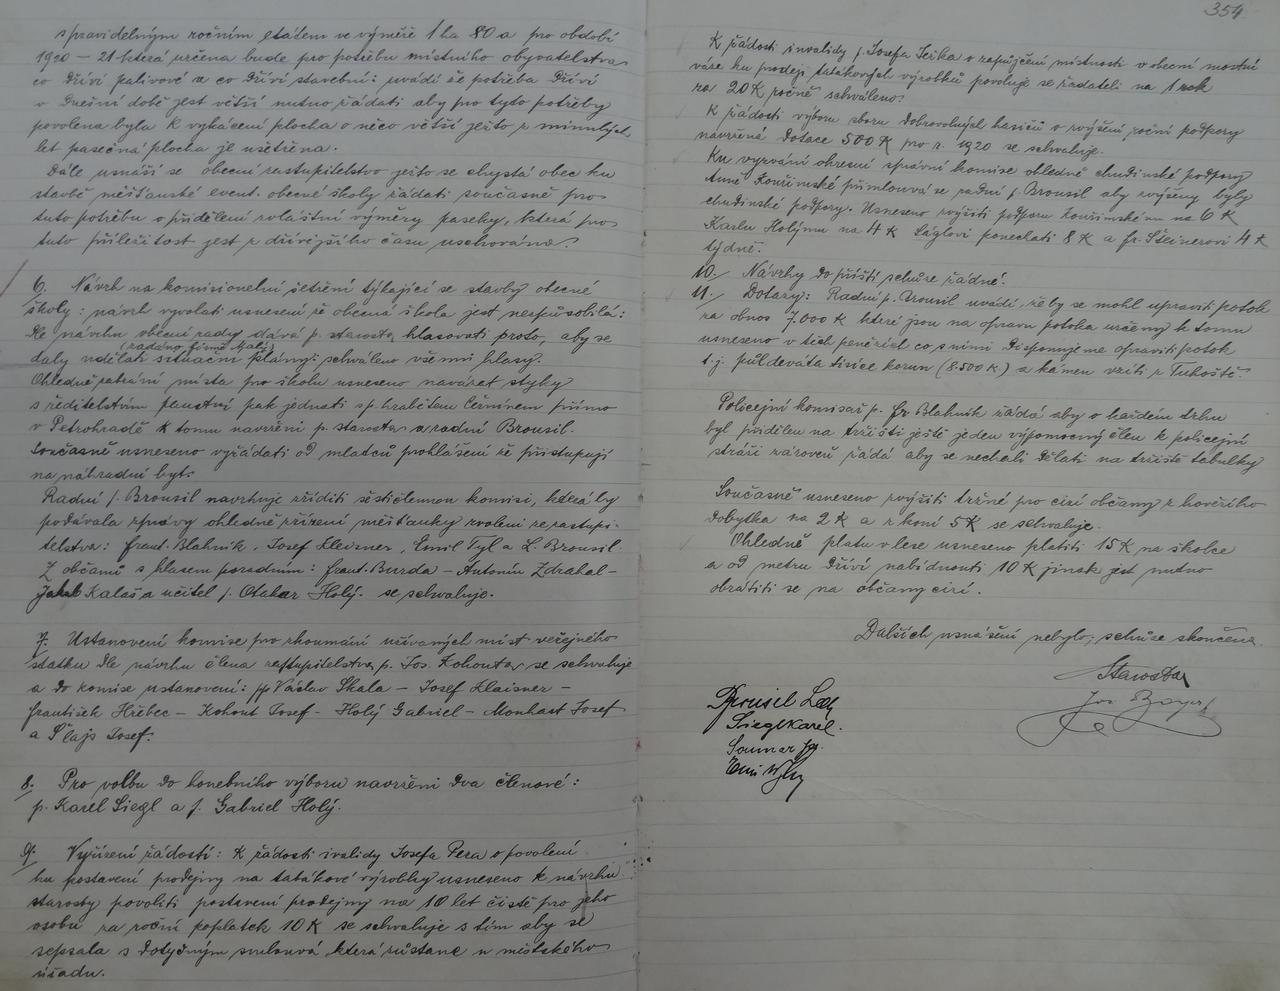 s pravidelným ročním etátem ve výměře 1 ha 80 a pro období
1920 – 21 která určena bude pro potřebu místního obyvatelstva
co dříví palivové a co dříví stavební: uvádí že potřeba dříví
v dnešní době jest větší nutno žádati aby pro tyto potřeby
povolena byla k vykácení plocha o něco větší ježto z minulých
let pasečná plocha je ušetřena.
Dále usnáší se obecní zastupitelstvo ježto se chystá obec ku
stavbě měšťanské event. obecné školy žádati současně pro
tuto potřebu o přidělení zvláštní výměry paseky, která pro
tuto příležitost jest z dřívějšího času uschována.
6. Návrh na komisionelní šetření týkající se stavby obecné
školy: návrh vyvolati usnesení že obecná škola jest nezpůsobilá:
Dle návrhu obecní rady dává p. starosta hlasovati proto, aby se
(zadáno firmě Malý)
daly udělati situační plány: schváleno všemi hlasy.
Ohledně zabrání místa pro školu usneseno navázat styky
s ředitelstvím panství pak jednati s p. hrabětem Černínem přímo
v Petrohradě k tomu navrženi p. starosta a radní Brousil.
Současně usneseno vyžádati od mladců prohlášení že přistupují
na náhradní byt.
Radní p. Brousil navrhuje zříditi šestičlennou komisi, která by
podávala zprávy ohledně zřízení měšťanky zvoleni ze zastupi-
telstva: Frant. Blahník, Josef Kleisner, Emil Tyl a L. Brousil.
Z občanů s hlasem poradním: Frant. Burda – Antonín Zdráhal –
Jakub Kalaš a učitel p. Otakar Holý. se schvaluje.
7. Ustanovení komise pro zkoumání užívaných míst veřejného
statku dle návrhu člena zastupitelstva p. Jos. Kohouta, se schvaluje
a do komise ustanoveni: pp Václav Skala – Josef Klaisner –
František Hřebec – Kohout Josef – Holý Gabriel – Monhart Josef
a Šlajs Josef.
8. Pro volbu do honebního výboru navrženi dva členové:
p. Karel Siegl a p. Gabriel Holý.
9. Vyřízení žádostí: K žádosti ivalidy Josefa Pera o povolení
ku postavení prodejny na tabákové výrobky usneseno k návrhu
starosty povoliti postavení prodejny na 10 let čistě pro jeho
osobu za roční poplatek 10 K se schvaluje s tím aby se
sepsala s dotyčným smlouva která zůstane u městského
úřadu.
354
K žádosti invalidy p. Josefa Jeika o zapůjčení místnosti v obecní mostní
váze ku prodeji tabákových výrobků povoluje se žadateli na 1 rok
za 20 K ročně schváleno.
K žádosti výboru sboru dobrovolných hasičů o zvýšení roční podpory
navržená dotace 500 K pro r. 1920 se schvaluje.
Ku vyzvání okresní správní komise ohledně chudinské podpory
Anně Kouřimské přimlouvá se radní p. Brousil aby zvýšeny byly
chudinské podpory. Usneseno zvýšiti podporu Kouřimské na 6 K
Karlu Holýmu na 4 K Ságlovi ponechati 8 K a Fr. Šteinerovi 4 K
týdně.
10. Návrhy do příští schůze žádné.
11. Dotazy: Radní p. Brousil uvádí, že by se mohl upraviti potok
za obnos 7.000 K které jsou na opravu potoka určeny k tomu
usneseno v těch penězích co s nimi disponujeme opraviti potok
t.j. půl deváta tisíce korun (8.500 K) a kámen vzíti z Tuhoště.
Policejní komisař p. Fr Blahník žádá aby o každém trhu
byl přidělen na tržišti ještě jeden výpomocný člen k policejní
stráži zároveň žádá aby se nechali dělati na tržiště tabulky
Současně usneseno zvýšiti tržné pro cizí občany z hovězího
dobytka na 2 K a z koní 5 K se schvaluje.
Ohledně platu v lese usneseno platiti 15 K na školce
a od metru dříví nabídnouti 10 K jinak jest nutno
obrátiti se na občany cizí.
Dalších usnášení nebylo, schůze skončena.
Starosta
Jos Bayer
Brousil Lad
Siegl Karel.
Soumar
Emil Tyl